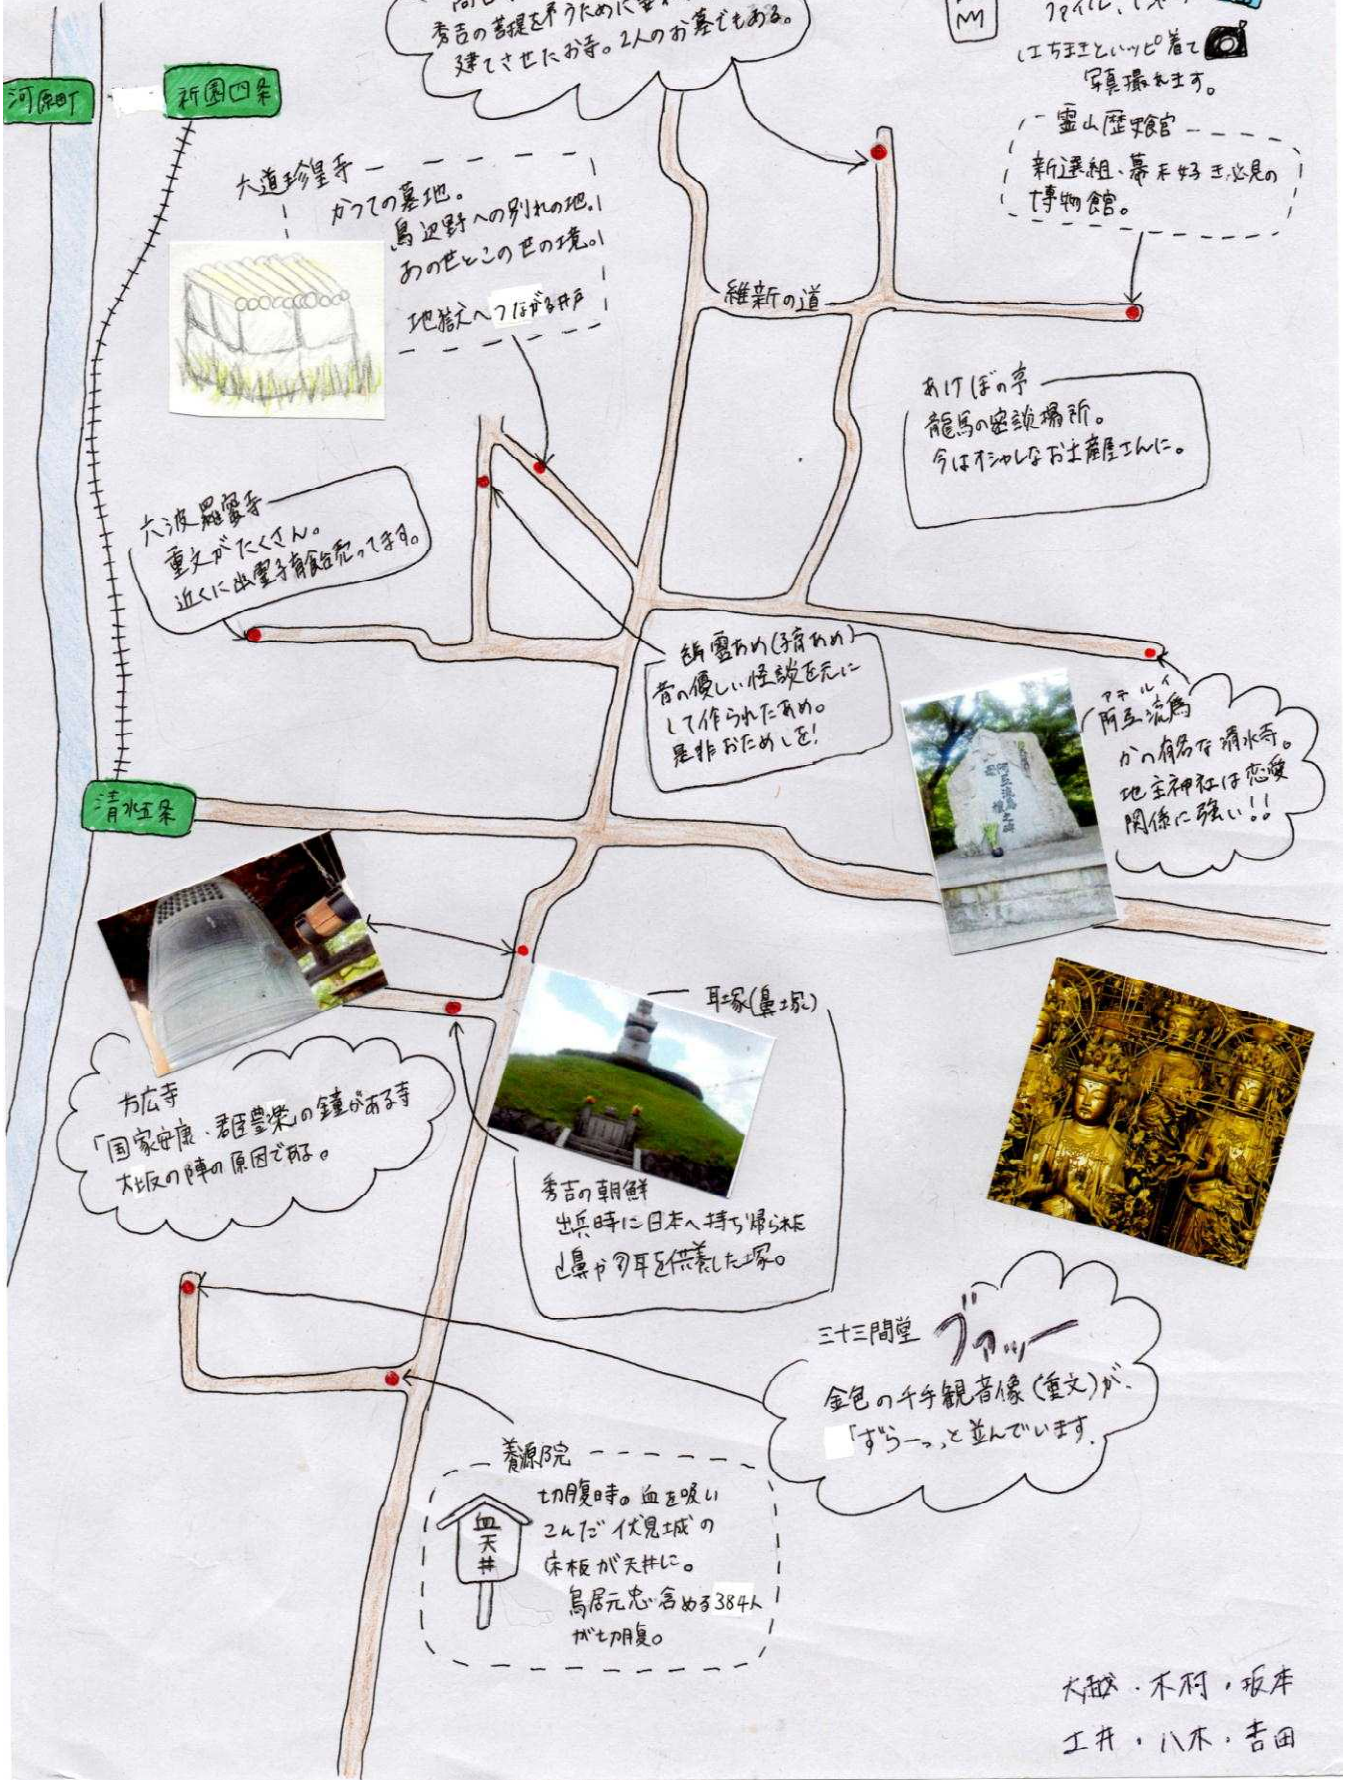 秀吉の菩提を弔うために
建てさせたお寺。2人のお墓でもある。
ファイル、
はちまきといハッピ着て
写真撮れます。
河原町
祇園四条
霊山歴史館
新選組、幕末好き必見の
博物館。
六道珍皇寺
かつての墓地。
鳥辺野への別れの地。
あのせとこのせの境。
地獄へつながる井戸
維新の道
あけぼの亭
龍馬の密談場所。
今はオシャレなお土産屋さんに。
六波羅蜜寺
重文がたくさん。
近くに幽霊子育飴売ってます。
幽霊あめ(子育あめ)
昔の優しい怪談を元に
して作られたあめ。
是非おためしを!
アテルイ
阿弖流為
かの有名な清水寺。
地主神社は恋愛
関係に強い!!
清水五条
耳塚(鼻塚)
方広寺
「国家安康・君臣豊楽」の鐘がある寺
大坂の陣の原因である。
秀吉の朝鮮
出兵時に日本へ持ち帰られた
鼻や耳を供養した塚。
三十三間堂
ブァッー
金色の千手観音像(重文)が、
「ずらーっ」と並んでいます。
養源院
血天井
切腹時の血を吸い
こんだ伏見城の
床板が天井に。
鳥居元忠含める384人
が切腹。
大越・木村・坂本
土井・八木・吉田